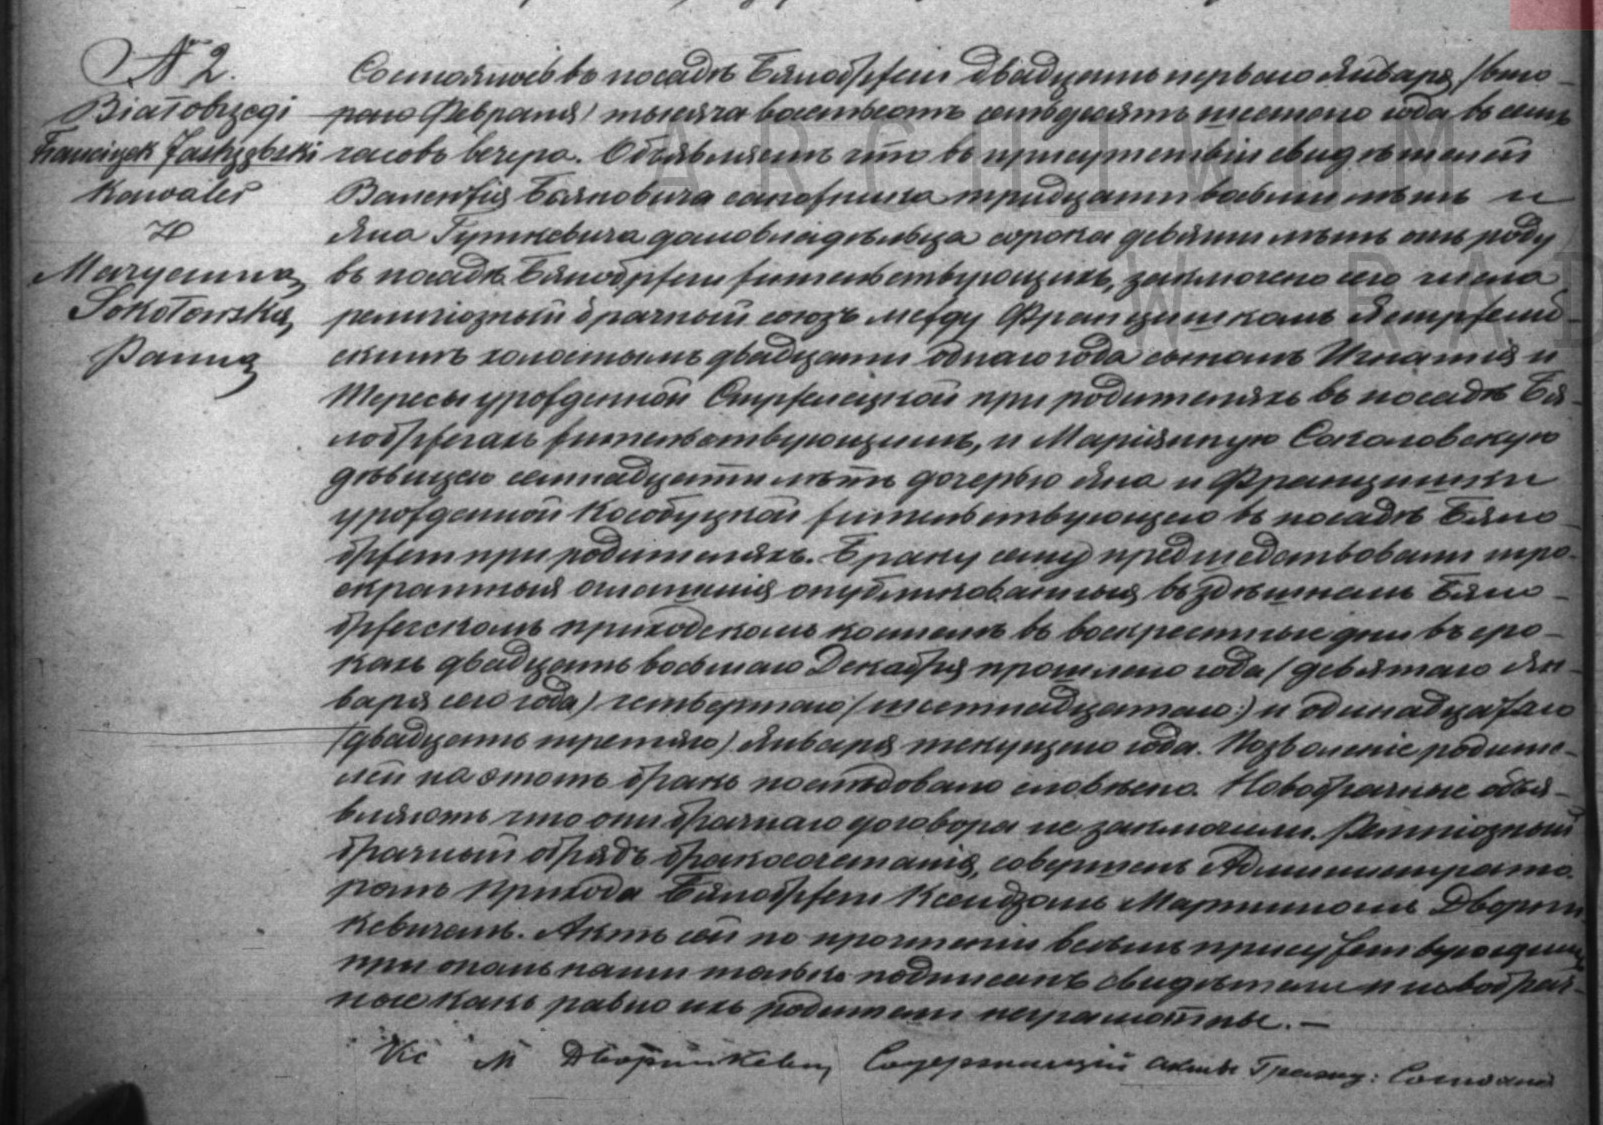 № 2.
Białobrzegi
Franciszek Jastrzębski
Kawaler
z
Maryanną
Sokołowską
Panną
Состоялось въ посадѣ Бялобржеги двадцать перваго Января /вто-
раго Февраля) тысяча восемьсотъ семьдесятъ шестаго года въ семь
часовъ вечера. Объявляемъ что въ присутствіи свидѣтелей
Валентія Бояновича сапожника тридцати восьми лѣтъ и
Яна Гуткевича домовладѣльца сорока девяти лѣтъ отъ роду
въ посадѣ Бялобржеги жительствующихъ, заключено сего числа
религіозный брачный союзъ между Францишкомъ Ястржемб-
скимъ холостымъ двадцати однаго года сыномъ Игнатія и
Тересы урожденной Стржелецкой при родителяхъ въ посадѣ Бя-
лобржегахъ жительствующимъ, и Маріянную Соколовскую
дѣвицею семнадцати лѣтъ дочерью Яна и Францишки
урожденной Кособуцкой жительствующею въ посадѣ Бяло-
бржеги при родителяхъ. Браку сему предшедствовали тро-
екратныя оглашенія опубликованныя въ здѣшнемъ Бяло-
бржегскомъ приходскомъ костелѣ въ воскрестные дни въ сро-
кахъ двадцать восьмаго Декабря прошлаго года /девятаго Ян-
варя сего года) четвертаго (шестнадцатаго) и одинадцатаго
(двадцать третяго) Января текущаго года. Позволеніе родите-
лей на этотъ бракъ послѣдовало словѣсно. Новобрачные объя-
вляютъ что они брачнаго договора не заключили. Религіозный
брачный обрядъ бракосочетанія, совершенъ Администрато-
ромъ прихода Бялобржеги Ксендзомъ Мартиномъ Дворни-
кевичемъ. Актъ сей по прочтеніи всѣмъ присутствующимъ
при ономъ нами только подписанъ свидѣтели и новобрач-
ные какъ равно ихъ родители неграмотные. —
Кс М Дворникевич, Содержащій акты Гражд: Состоянія